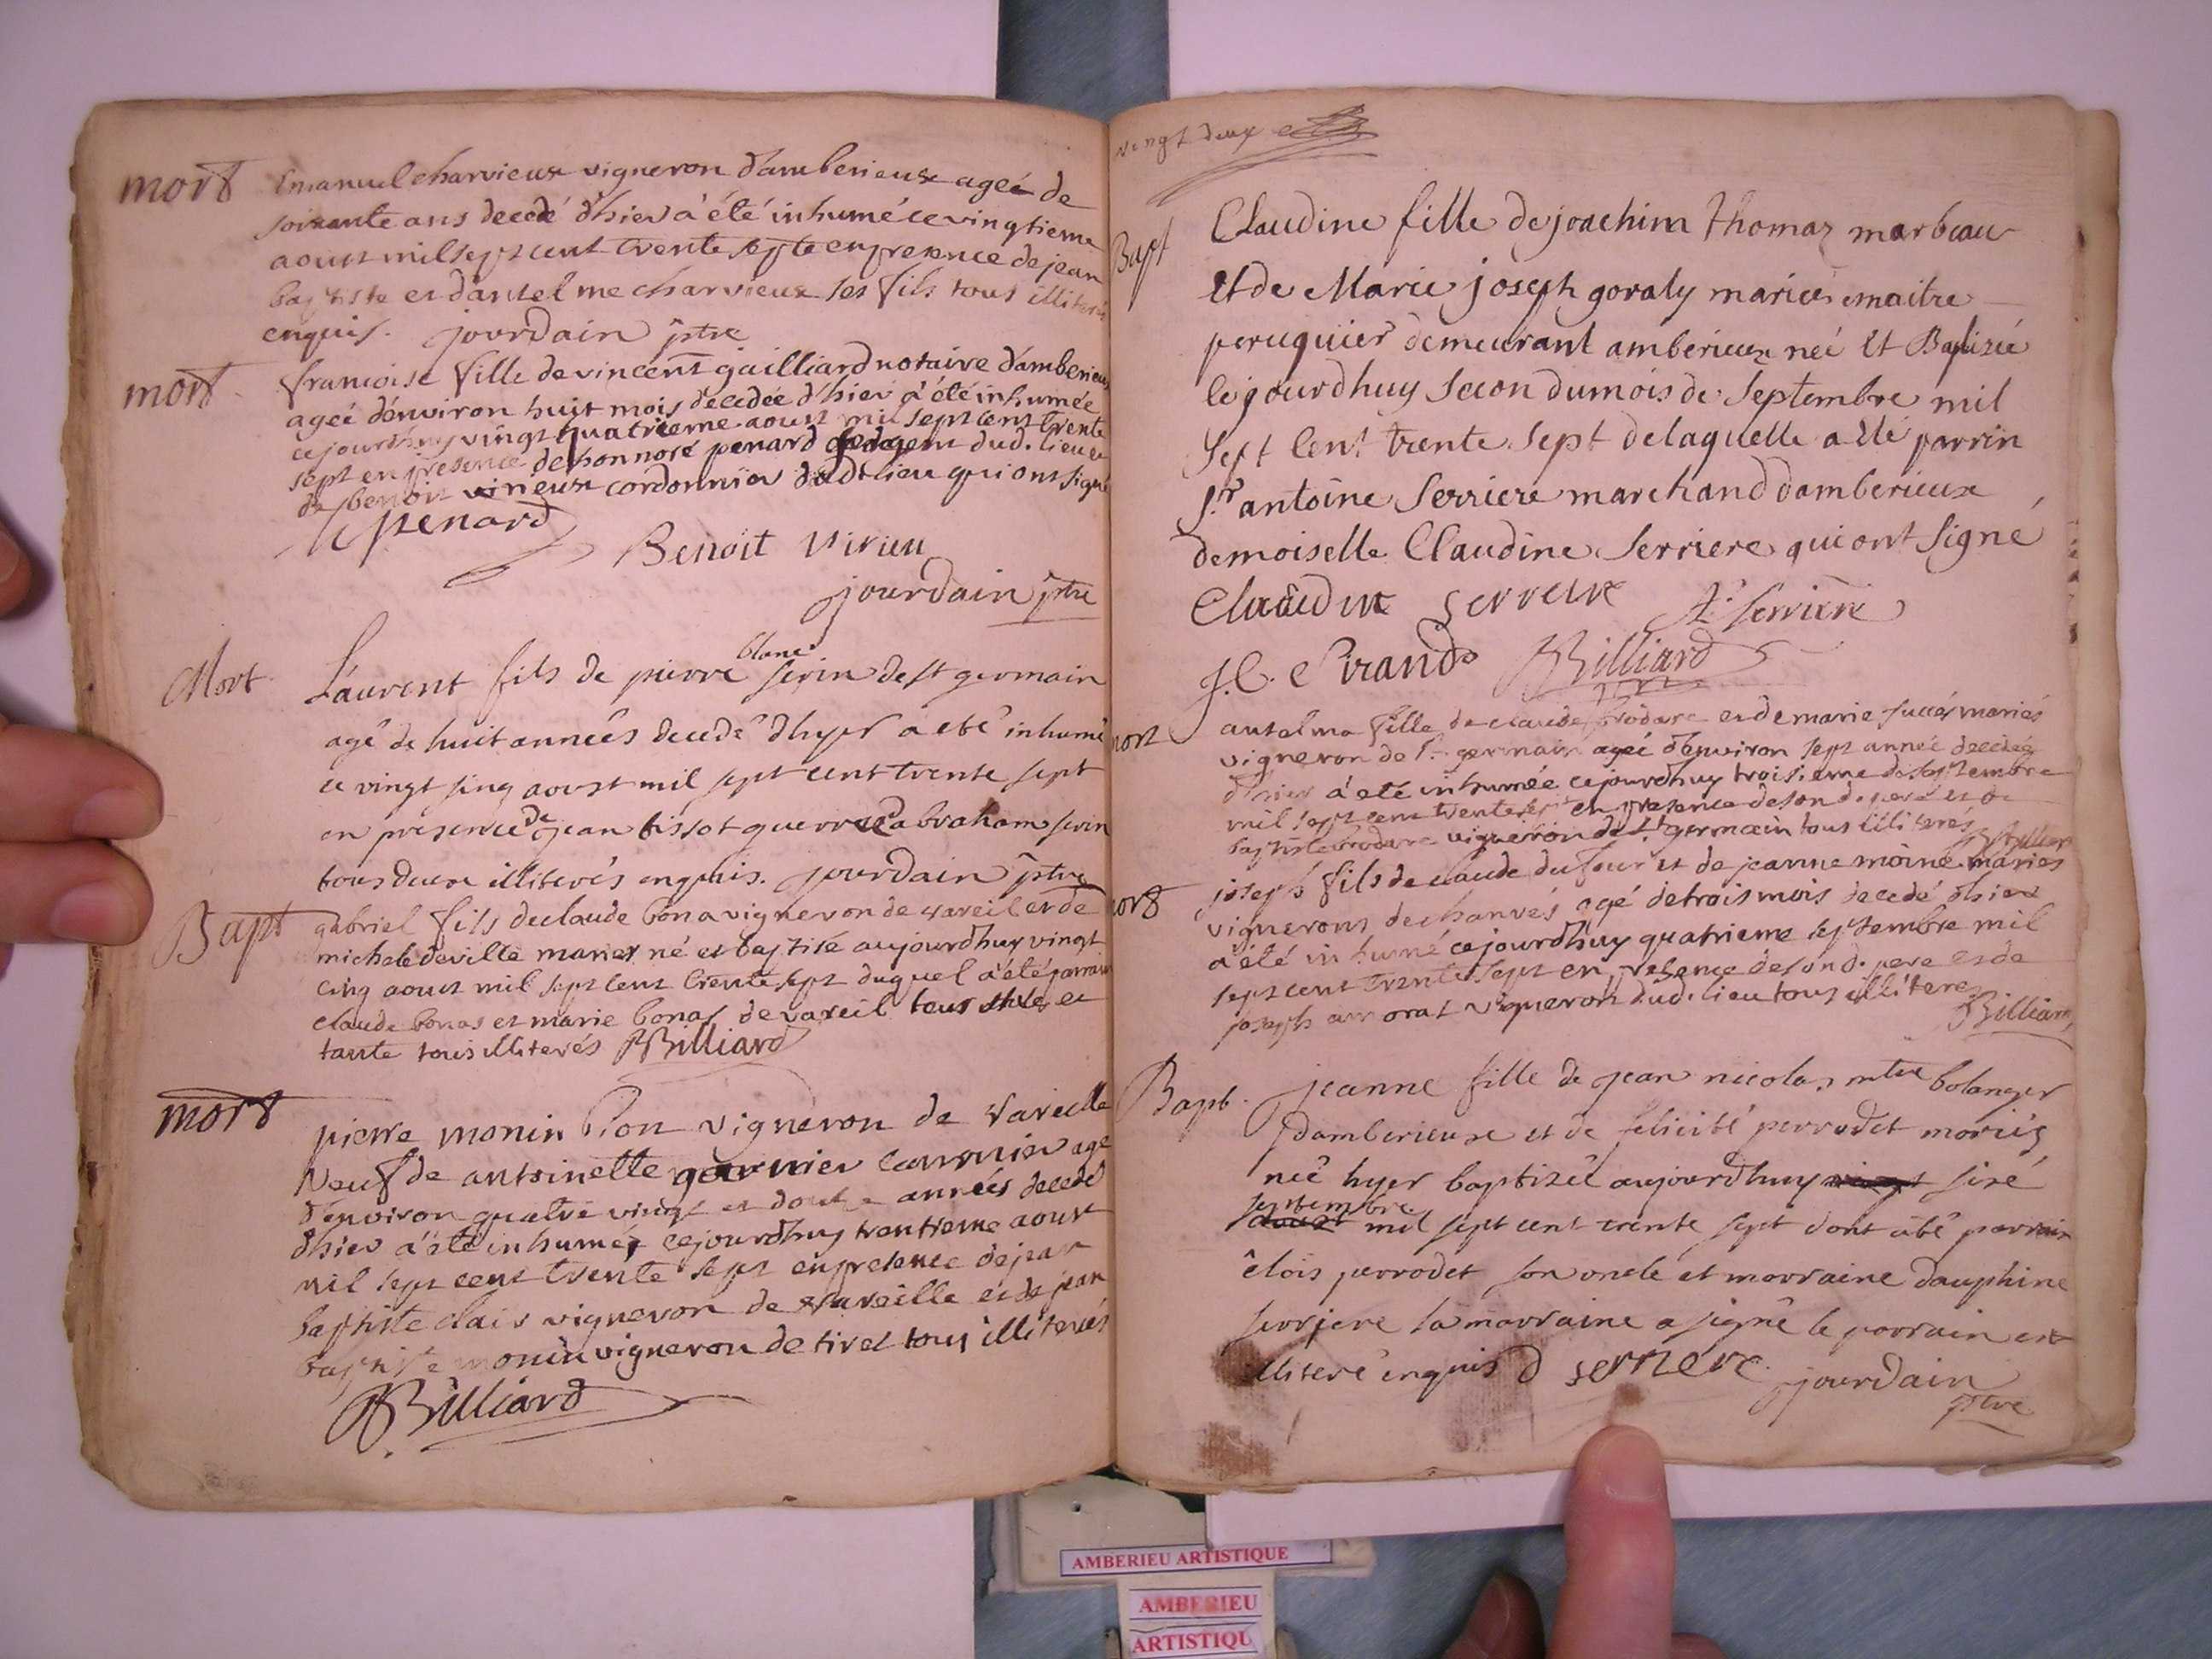 mort
Emanuel charvieux vigneron d'amberieux ageé de
soixante ans decedé d'hier a été inhumé ce vingtieme
aoust mil sept cent trente septe en presence de jean
baptiste et d'antelme charvieux ses fils tous illiterés
enquis. jourdain ptre
mort
francoise fille de vincent gailliard notaire d'amberieux
ageé d'environ huit mois decedée d'hier a été inhumée
cejourdhuy vingt quatrieme aoust mil sept cent trente
sept en presence de honnoré penard dud. lieu et
de benoit vineux cordonnier dudt lieu qui ont signé
penard
Benoit virieu
jourdain ptre
Mort
Laurent fils de pierre blanc serin de st germain
agé de huit anneés decedé dhyer a eté inhumé
ce vingt sinq aoust mil sept cent trente sept
en presence de jean tissot guerre d'abraham serin
tous deux illiterés enquis. jourdain ptre
Bapt
gabriel fils de claude bona vigneron de vareil et de
michele deville mariés né et baptisé aujourdhuy vingt
cinq aoust mil sept cent trente sept duquel a été parrain
claude bonas et marie bonas de vareil et
tante tous illiterés Billiard
mort
pierre monin Pion vigneron de vareille
veuf de antoinette garnier agé
d'environ quatre vingt et douze anneés decedé
dhier a été inhumé cejourdhuy trentieme aoust
mil sept cent trente sept en presence de jean
baptiste clair vigneron de vareille et de jean
baptiste monin vigneron de tiret tous illiterés
Billiard
vingt deux
Bapt
Claudine fille de joachim thomas marbeau
et de Marie joseph goraly mariés maitre
peruquier demeurant amberieux neé et Baptizée
lejourdhuy secon du mois de Septembre mil
Sept Cent trente Sept de laquelle a été parrin
Sr. antoine Serriere marchand damberieux
demoiselle Claudine Serriere qui ont Signé
Claudine serreire A. Serriere
J. C. Birand Billiard
mort
antelma fille de claude brodare et de marie mariés
vigneron de St. germain ageé d'environ sept année decedée
d'hier a été inhumée cejourdhuy troisieme de septembre
mil sept cent trente sept en presence de son d. pere et de
baptiste brodare vigneron de St germain tous illiteres Billiard
mort
joseph fils de claude dufour et de jeanne moine mariés
vignerons de chanvés agé de trois mois decedé dhier
a été inhumé cejourdhuy quatrieme septembre mil
sept cent trente sept en presence de son d. pere et de
joseph amorat vigneron dud. lieu tous illiteres
Billiard
Bapt.
jeanne fille de jean nicolas mtre bolanger
damberieux et de felicité perrodet mariés
neé hyer baptizeé aujourdhuy sixé
septembre mil sept cent trente sept dont a eté parrain
élois perrodet son oncle et marraine dauphine
serriere la marraine a signé le parrain est
illiteré enquis D serriere jourdain
ptre
AMBERIEU ARTISTIQUE
AMBERIEU
ARTISTIQU